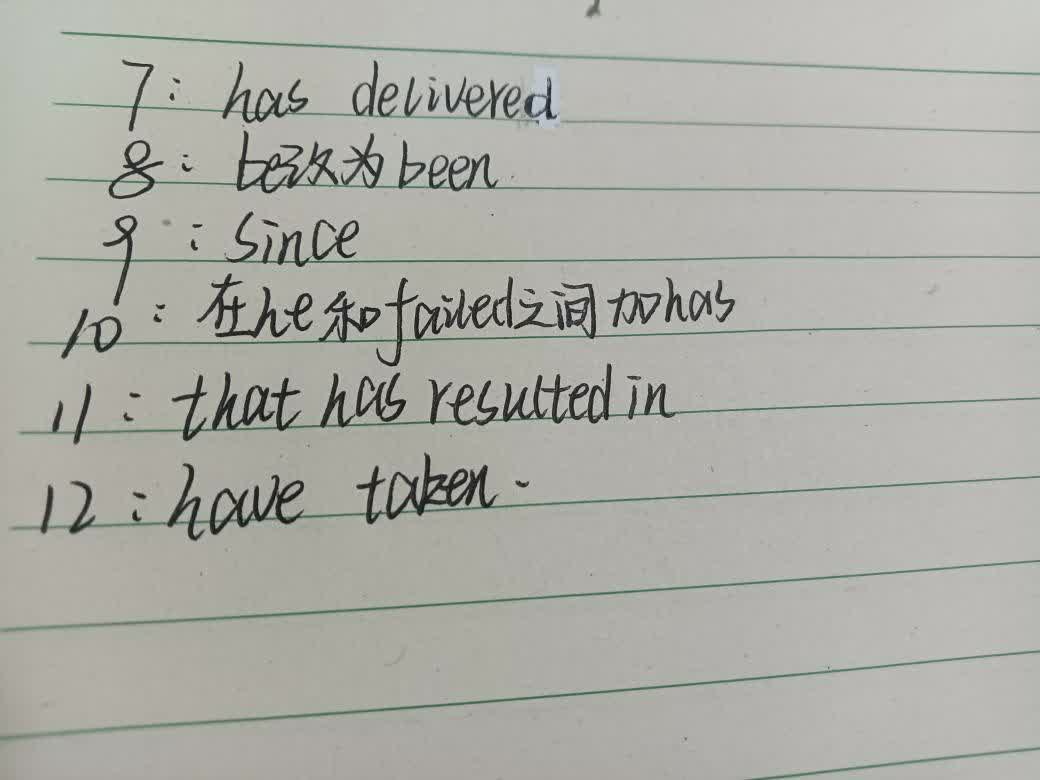 7: has delivered
8: be改为been
9: since
10: 在he和failed之间加has
11: that has resulted in
12: have taken.